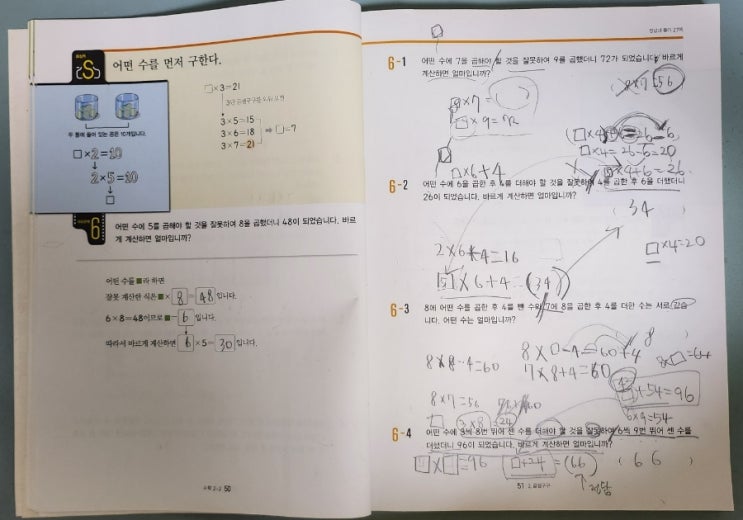 어떤 수를 먼저 구한다.
두 통에 들어 있는 공은 10개입니다.
□×2=10
2×5=10
□
□×3=21
3×5=15
3×6=18
3×7=21
⇒ □=7
6
어떤 수에 5를 곱해야 할 것을 잘못하여 8을 곱했더니 48이 되었습니다. 바르
게 계산하면 얼마입니까?
어떤 수를 ■라 하면
잘못 계산한 식은 ■×8=48입니다.
6×8=48이므로 ■=6입니다.
따라서 바르게 계산하면 6×5=30입니다.
수학 2-2 50
정답과 풀기 27쪽
6-1 어떤 수에 7을 곱해야 할 것을 잘못하여 9를 곱했더니 72가 되었습니다. 바르게
계산하면 얼마입니까?
8×7=56
8×7=( )
□×9=72
□×4=26-6=20
□×6+4
□×4+6=26
6-2 어떤 수에 6을 곱한 후 4를 더해야 할 것을 잘못하여 4를 곱한 후 6을 더했더니
26이 되었습니다. 바르게 계산하면 얼마입니까?
34
□×4=20
2×6+4=16
5×6+4=(34)
6-3 8에 어떤 수를 곱한 후 4를 뺀 수와 7에 8을 곱한 후 4를 더한 수는 서로 같습
니다. 어떤 수는 얼마입니까?
8
8×□-4=60+4
8×□=64
8×8-4=60
7×8+4=60
□+54=96
8×7=56
3×8=24
6×9=54
6-4 어떤 수에 3씩 8번 뛰어 센 수를 더해야 할 것을 잘못하여 6씩 9번 뛰어 센 수를
더했더니 96이 되었습니다. 바르게 계산하면 얼마입니까?
□+24=(66)
(66)
정답
51 2. 곱셈구구